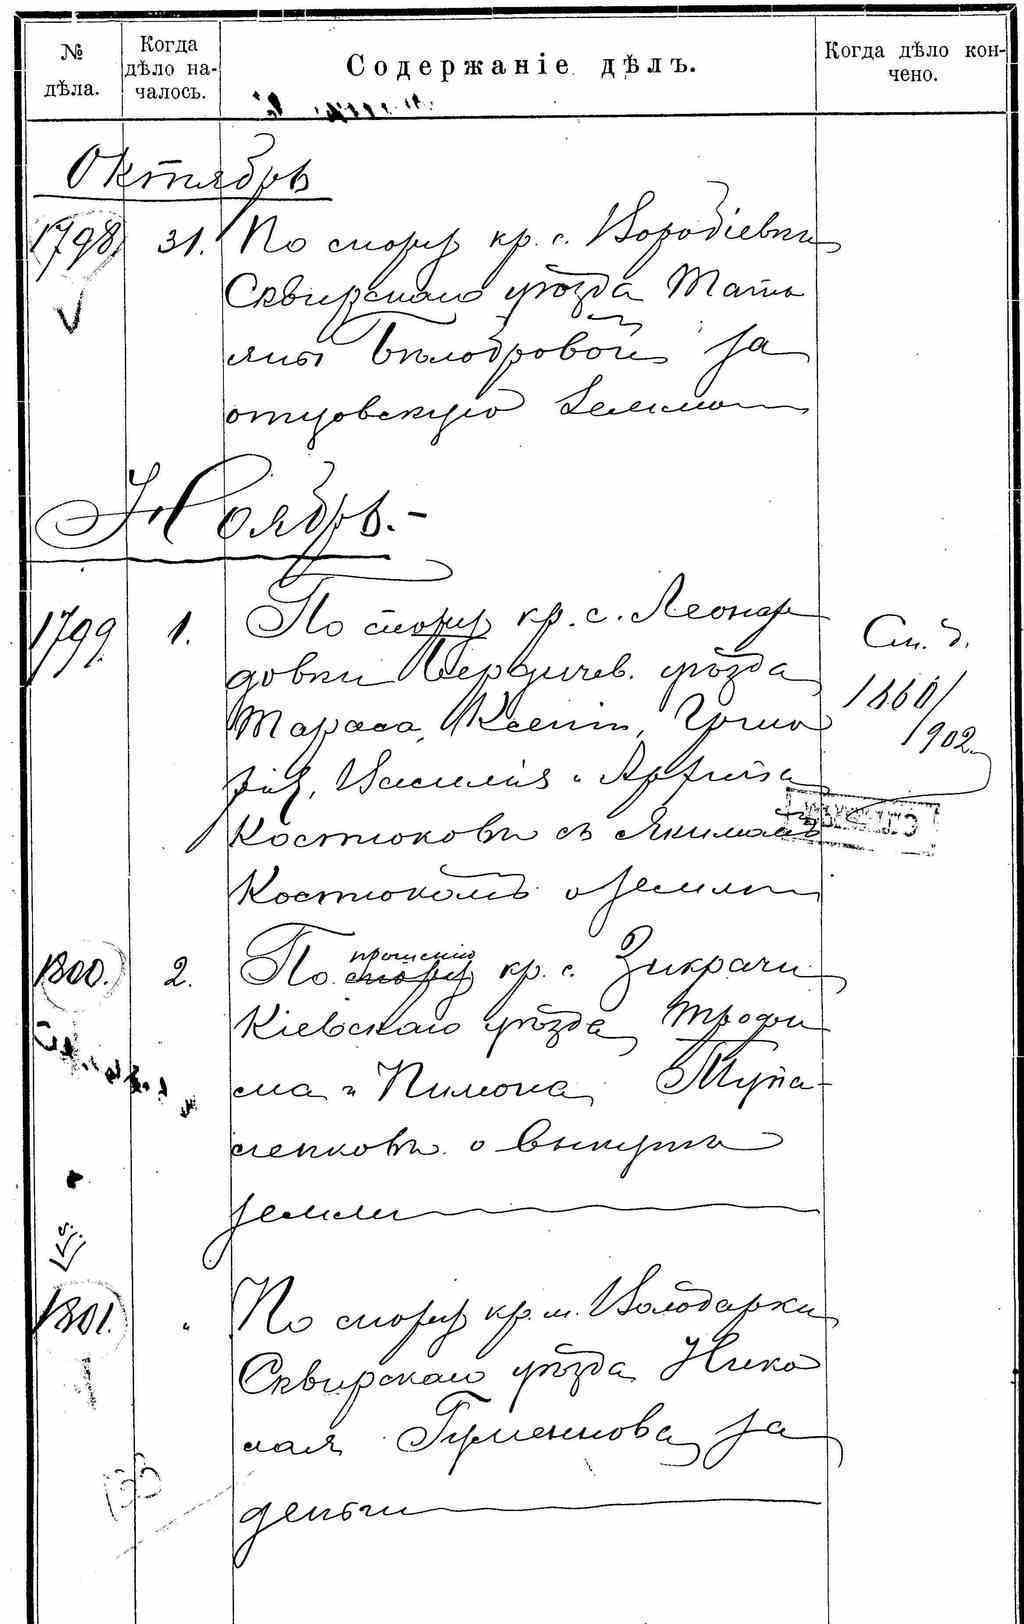 № дѣла.
Когда дѣло на-
чалось.
Содержаніе дѣлъ.
Когда дѣло кон-
чено.
Октябрь
1798 31. По спору кр. с. Воробіевки
Сквирскаго уѣзда Татья
яны Бѣлобровой за
отцовскую землю
Ноябрь.-
1799. 1. По спору кр. с. Леонар
довки Бердичев. уѣзда
Тараса, Ксеніи, Григо
рія, Василія и Арфима
Костюковъ съ Якимомъ
Костюкомъ о землѣ
См. д.
1860/
/902
1800. 2. По прошенію спору кр. с. Зикрачи
Кіевскаго уѣзда Трофи
ма и Пимона Тупа-
ленковъ о выкупѣ
земли
1801. " По спору кр. м. Володарки
Сквирскаго уѣзда Нико
лая Гуменнова за
деньги